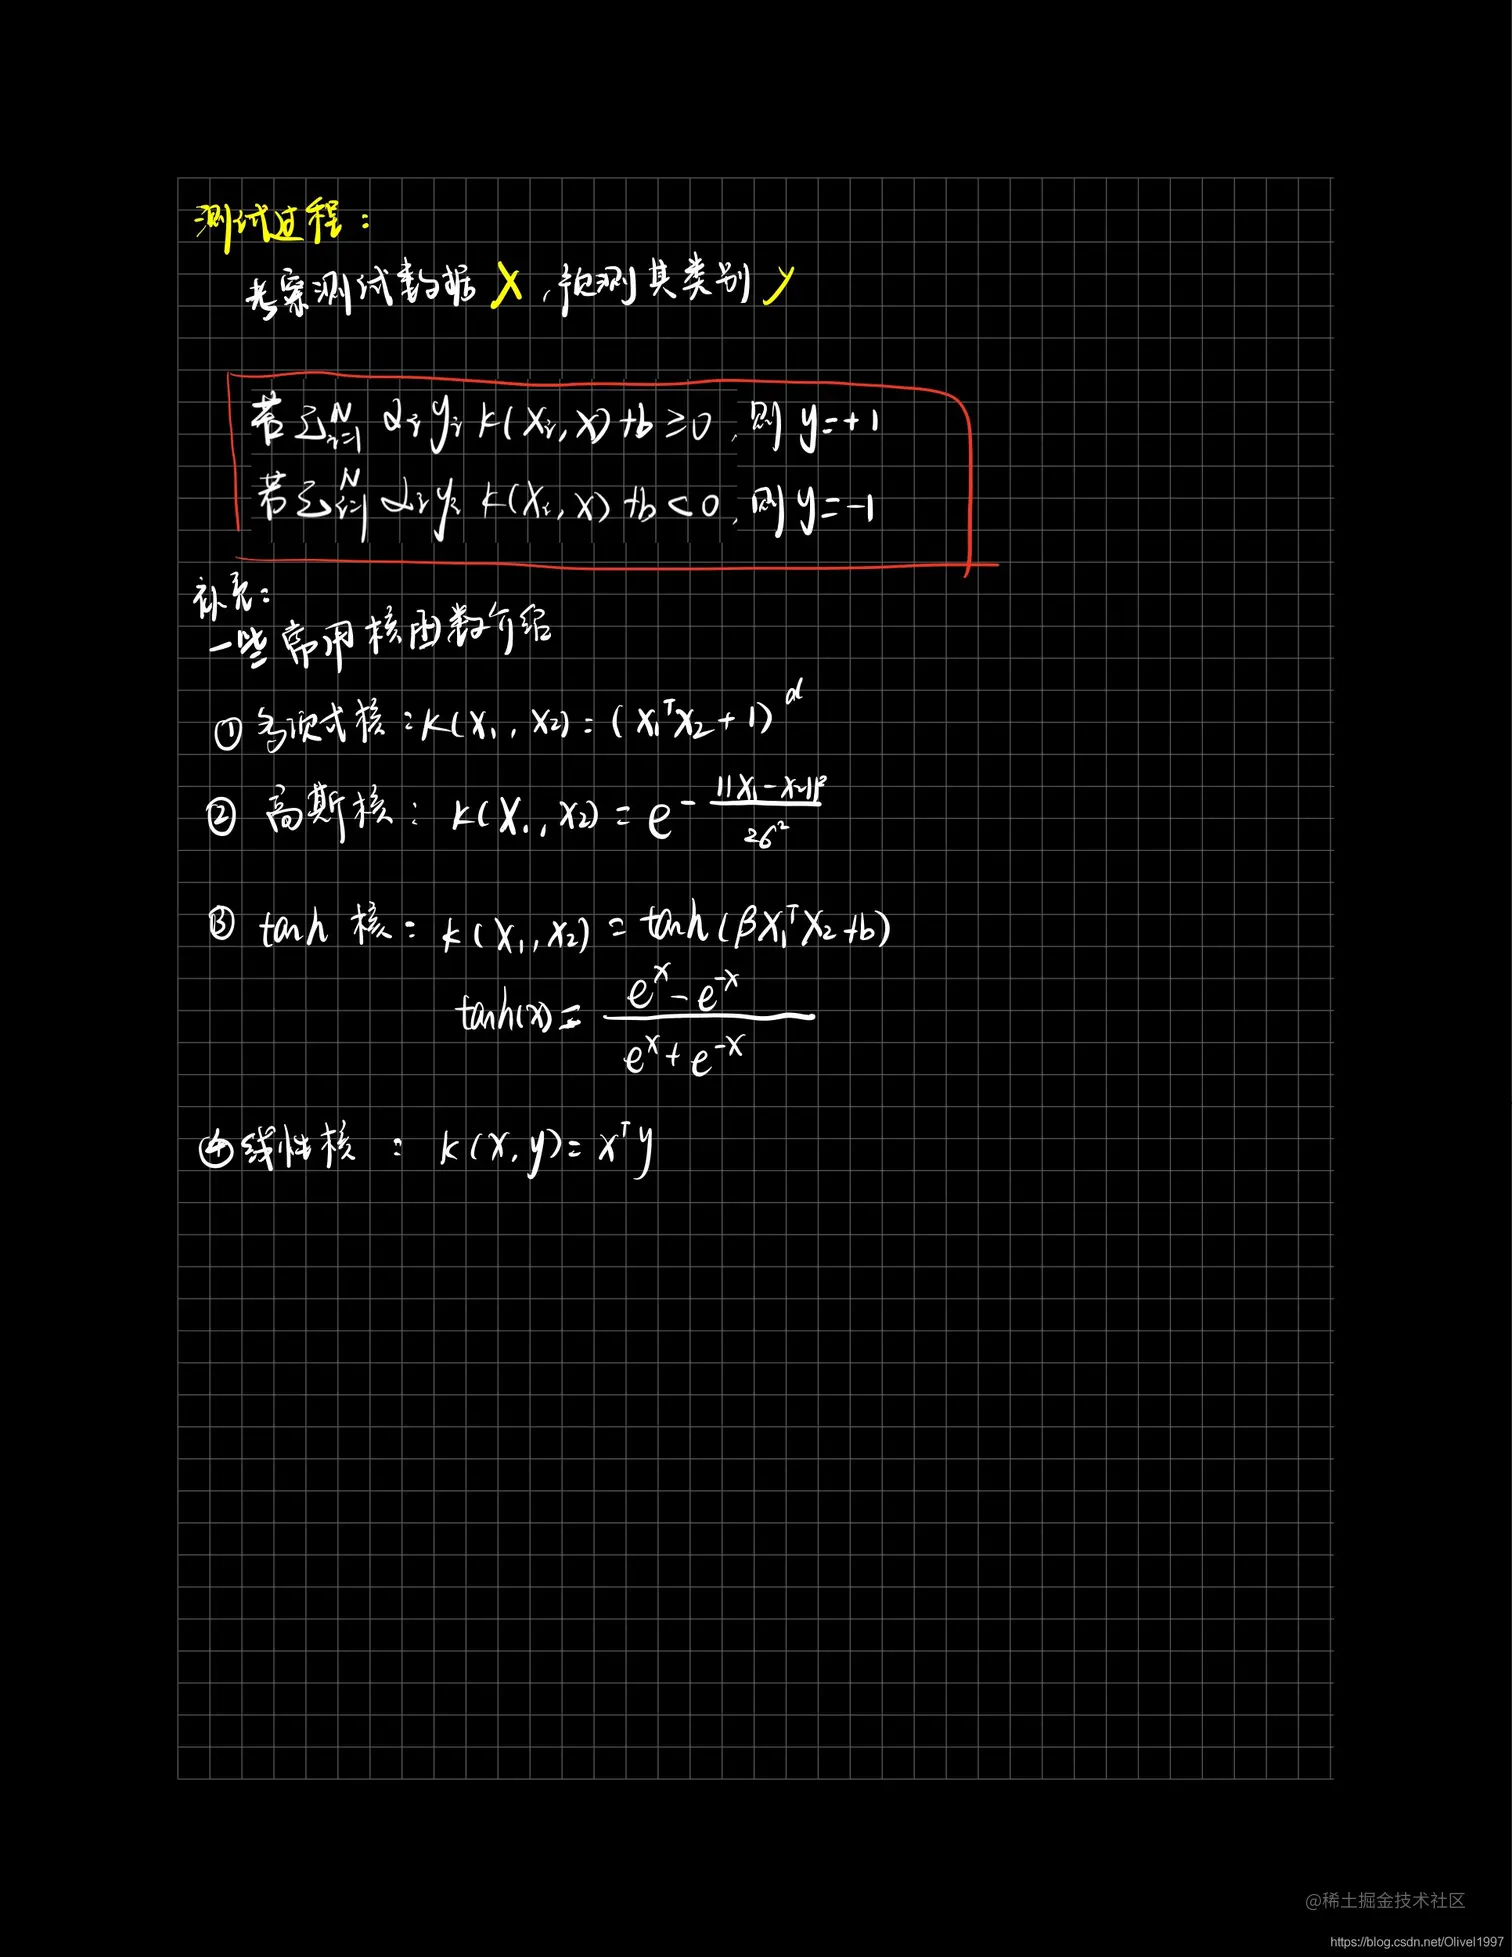 测试过程：
考察测试数据 X，预测其类别 y
若 Σ_{i=1}^{N} α_i y_i K(X_i, X)+b ≥0，则 y=+1
若 Σ_{i=1}^{N} α_i y_i K(X_i, X)+b <0，则 y=-1
补充：
一些常用核函数介绍
① 多项式核：K(X₁, X₂) = (X₁ᵀX₂+1)^d
② 高斯核： K(X₁, X₂) = e^{-||X₁-X₂||²/2σ²}
③ tanh 核： K(X₁, X₂) = tanh(βX₁ᵀX₂+b)
tanh(x) = (e^x - e^{-x})/(e^x + e^{-x})
④ 线性核 ： K(x, y) = xᵀy
@稀土掘金技术社区
https://blog.csdn.net/Olivel1997